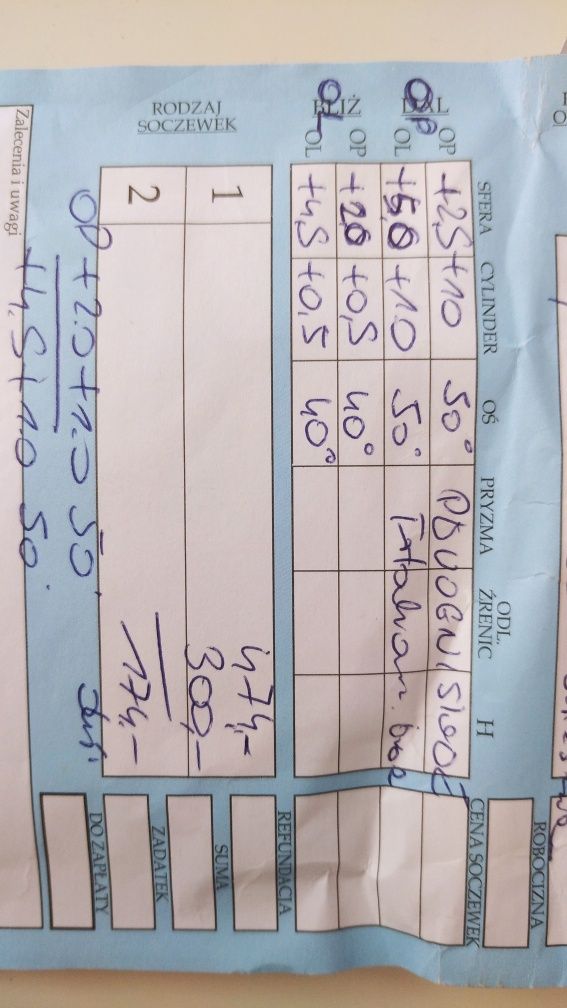 ROBOCIZNA
SFERA CYLINDER OŚ PRYZMA ODL. ŹRENIC H CENA SOCZEWEK
DAL OP +2,5 +1,0 50°
OP OL +1,0 50°
BLIŻ OP +0,5 40°
OL OL +4,5 +0,5 40°
REFUNDACJA
RODZAJ SOCZEWEK
1 474,- SUMA
300,-
2 174,- ZADATEK
OP +2.0 +1.0 50° DO ZAPŁATY
+4.5 +1.0 50°
Zalecenia i uwagi